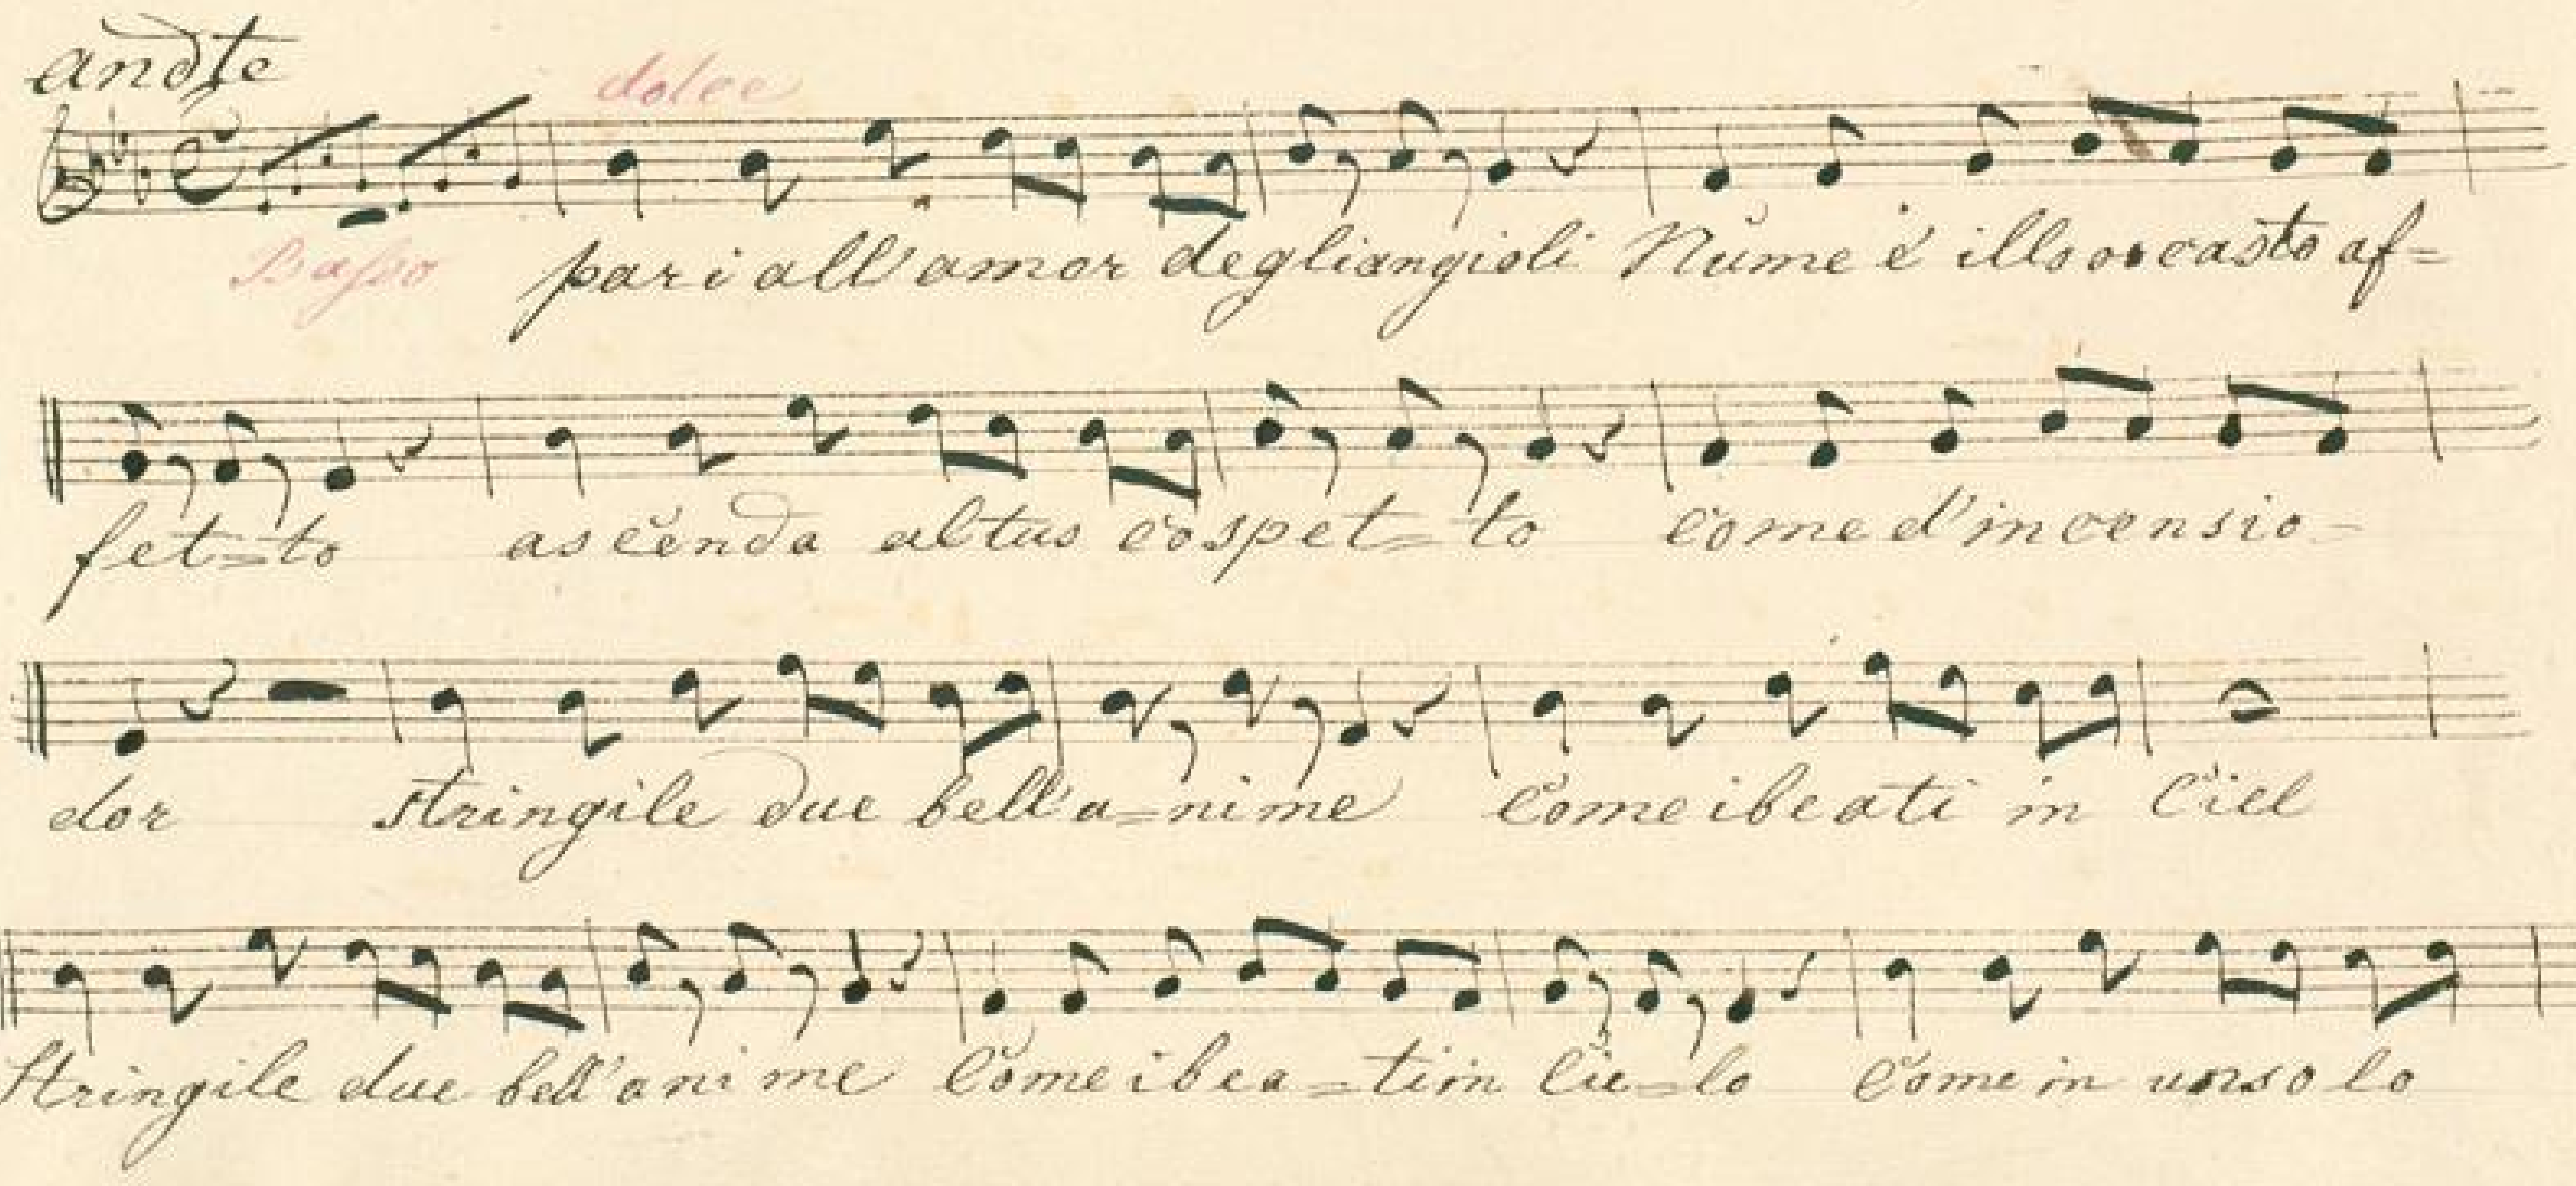 andte
dolce
Basso
pari all'amor degliangioli Nume è illor casto af=
fet=to ascenda altus cospet=to Come d'incensio-
dor Stringile due bell'a=nime Come ibeati in Ciel
Stringile due bell'anime Come ibea=tiin Cie=lo Come in unso lo